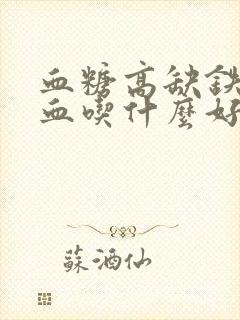 血糖高缺鉄
血喫什麼好
蘇酒仙